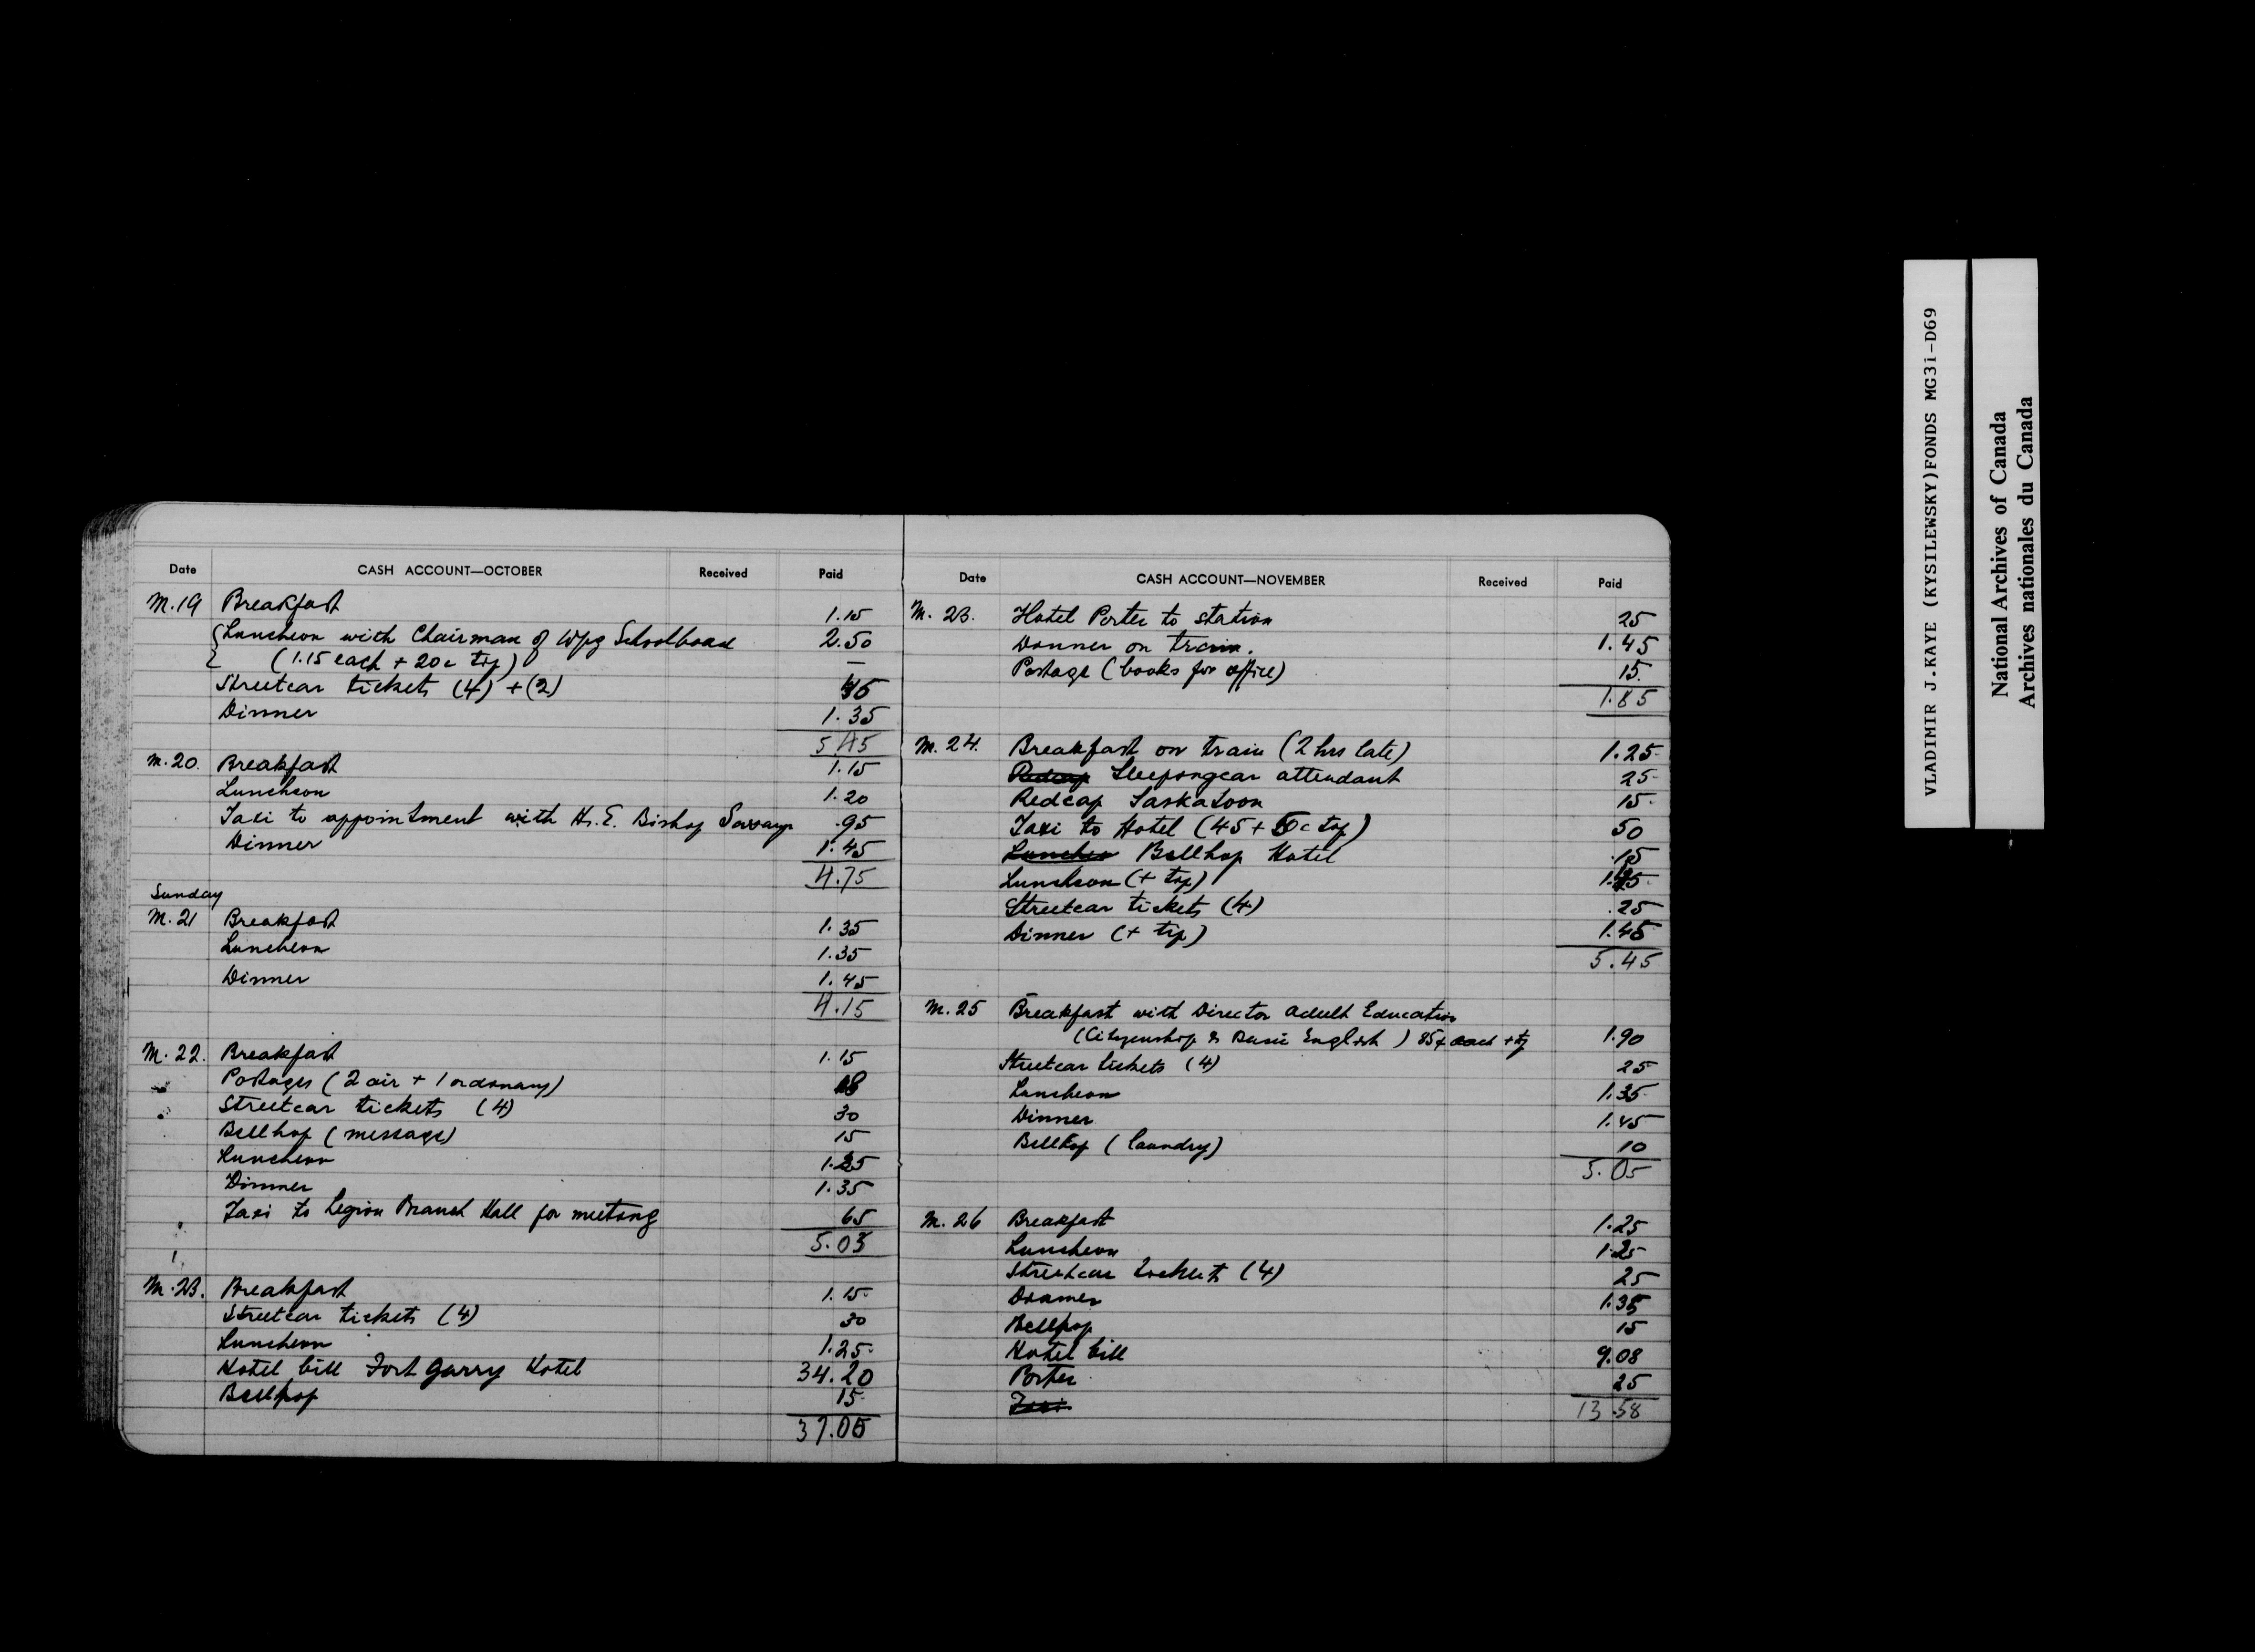 Date CASH ACCOUNT—OCTOBER Received Paid
M.19 Breakfast 1.15
Luncheon with Chairman of Wpg Schoolboard 2.50
(1.15 each + 20c tip) —
Streetcar tickets (4) + (2) 45
Dinner 1.35
5.45
M.20. Breakfast 1.15
Luncheon 1.20
Taxi to appointment with H.E. Bishop .95
Dinner 1.45
4.75
Sunday
M.21 Breakfast 1.35
Luncheon 1.35
Dinner 1.45
4.15
M.22. Breakfast 1.15
Postages (2 air + 1 ordinary) 18
Streetcar tickets (4) 30
Bellhop (message) 15
Luncheon 1.25
Dinner 1.35
Taxi to Legion Branch Hall for meeting 65
5.03
M.23. Breakfast 1.15
Streetcar tickets (4) 30
Luncheon 1.25
Hotel bill Fort Garry Hotel 34.20
Bellhop 15
37.05
Date CASH ACCOUNT—NOVEMBER Received Paid
M. 23. Hotel Porter to station 25
Dinner on train. 1.45
Postage (books for office) 15.
1.85
M.24. Breakfast on train (2 hrs late) 1.25
Redcap Sleepingcar attendant 25
Redcap Saskatoon 15
Taxi to Hotel (45 + 5c tip) 50
Luncheo Bellhop Hotel .15
Luncheon (+ tip)
Streetcar tickets (4) .25
Dinner (+ tip) 1.45
5.45
M.25 Breakfast with Director Adult Education
(Citizenship & Basic English) 85¢ each + tip 1.90
Streetcar tickets (4) 25
Luncheon 1.35
Dinner 1.45
Bellhop (laundry) 10
5.05
M.26 Breakfast 1.25
Luncheon 1.25
Streetcar tickets (4) 25
Dinner 1.35
Bellhop 15
Hotel bill 9.08
Porter 25
Taxi
13.58
VLADIMIR J.KAYE (KYSILEWSKY)FONDS MG31-D69
National Archives of Canada
Archives nationales du Canada